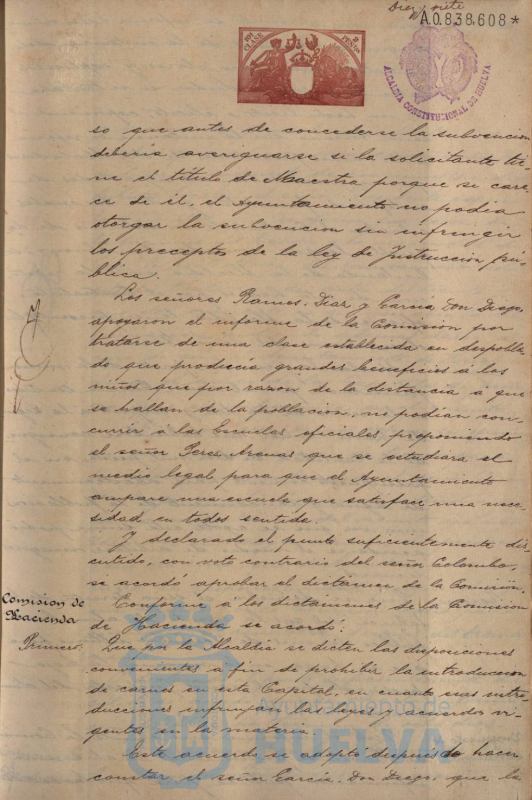 Diez y siete
A.0.838.608*
ALCALDIA CONSTITUCIONAL DE HUELVA
so que antes de concederse la subvencion
deberia averiguarse si la solicitante tie-
ne el titulo de Maestra porque si care-
ce de él, el Ayuntamiento no podia
otorgar la subvencion sin infringir
los preceptos de la ley de Instruccion pú-
blica.
Los señores Ramos, Diaz y Garcia, Don Diego,
apoyaron el informe de la Comisión por
tratarse de una clase establecida en despobla-
do que producia grandes beneficios á los
niños que por razon de la distancia á que
se hallan de la poblacion, no podian con-
currir á las Escuelas oficiales, proponiendo
el señor Perez Arenas que se estudiara el
medio legal para que el Ayuntamiento
ampare una escuela que satisface una nece-
sidad en todos sentidos.
Y declarado el punto suficientemente dis-
cutido, con voto contrario del señor Colombo,
se acordó aprobar el dictámen de la Comisión.
Comision de
Hacienda
Conforme á los dictámenes de la Comision
de Hacienda se acordó:
Primero:
Que por la Alcaldia se dicten las disposiciones
convenientes a fin de prohibir la introduccion
de carnes en esta Capital, en cuanto esas intro-
ducciones infrinjan las leyes y acuerdos vi-
gentes en la materia.
Este acuerdo se adoptó despues de hacer
constar el señor García, Don Diego, que la
Ayuntamiento de
HUELVA